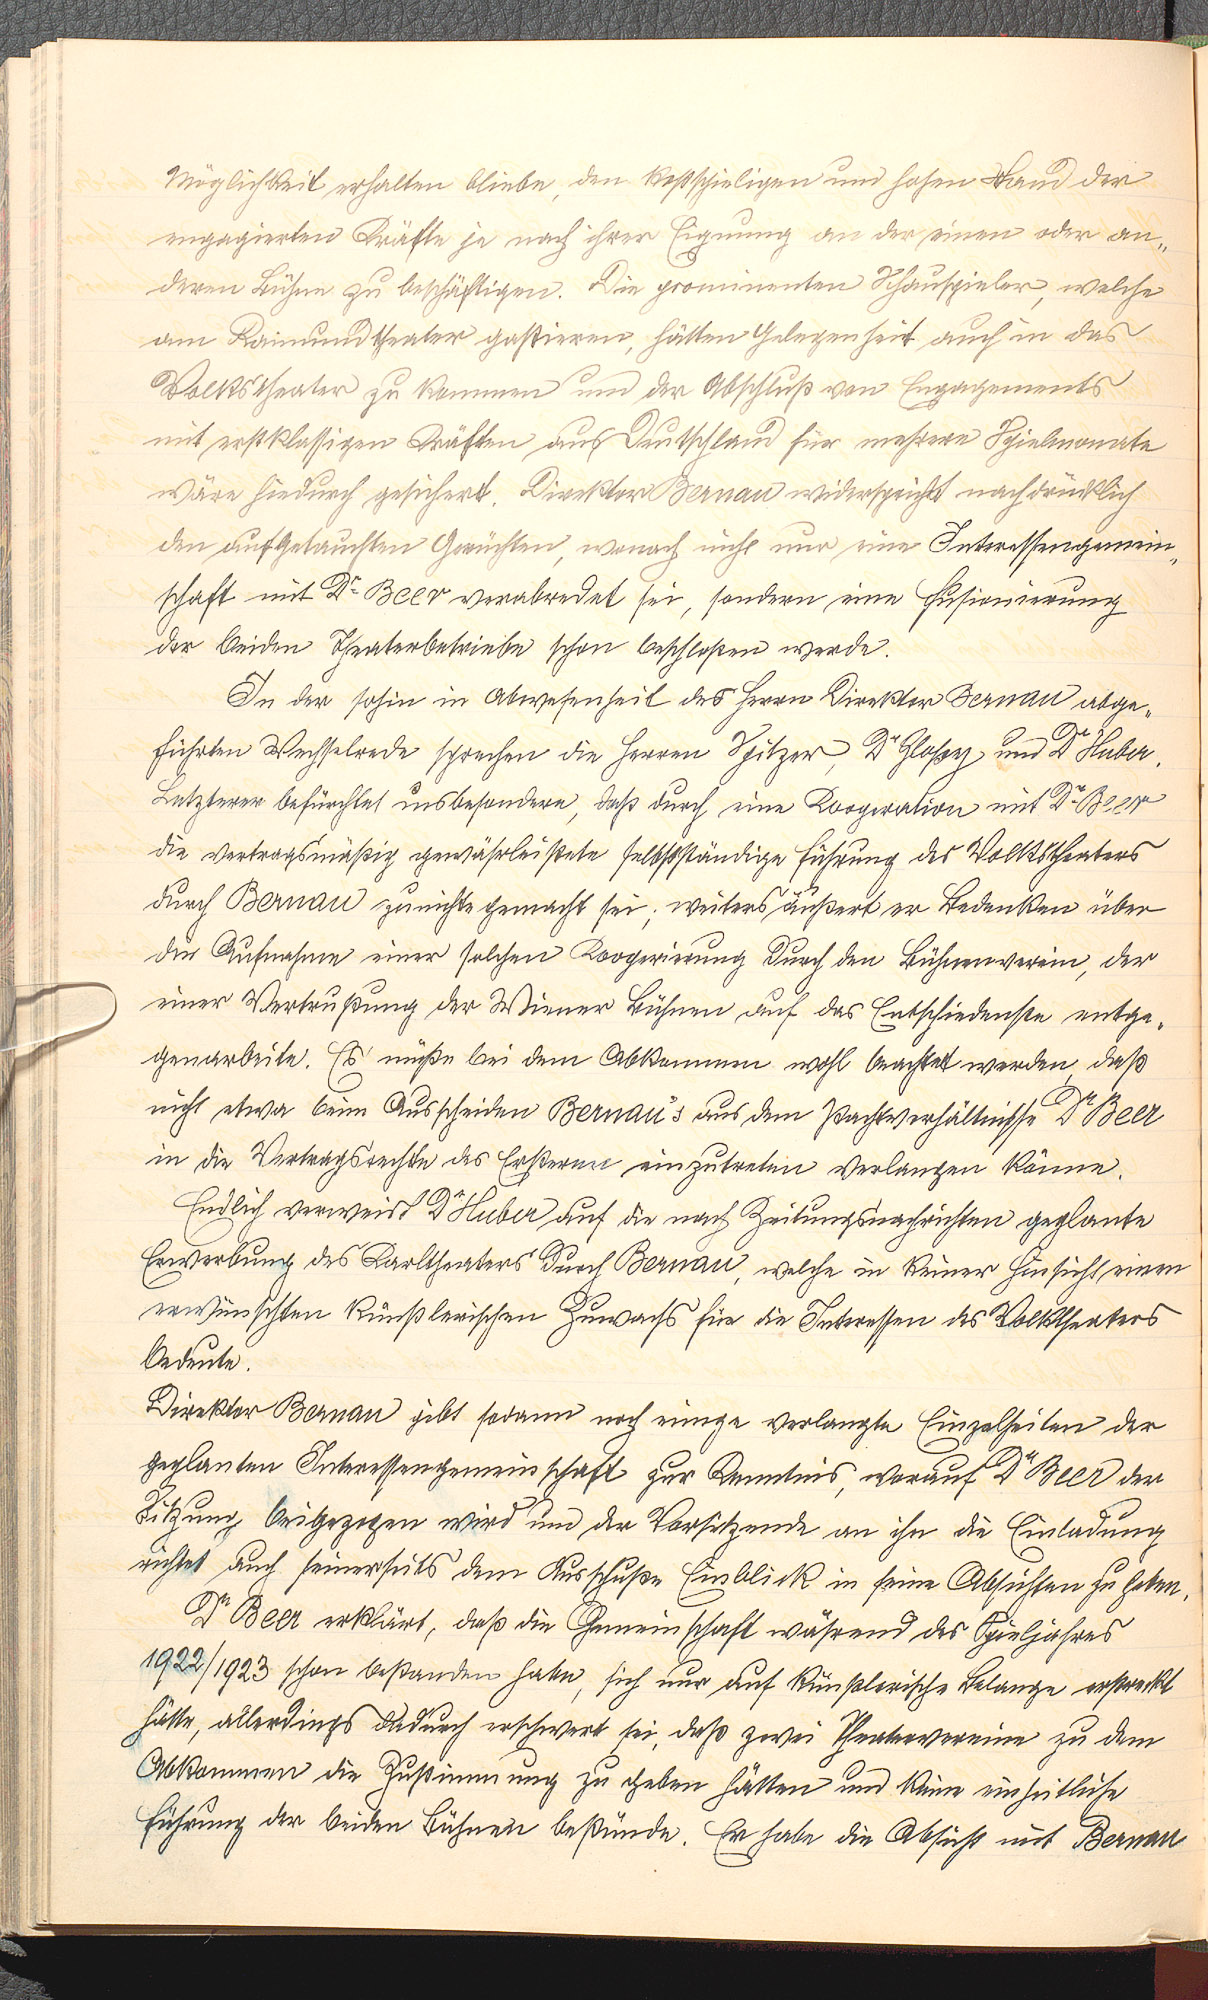 Möglichkeit erhalten bliebe, den kostspieligen und hohen Stand der
engagierten Kräfte je nach ihrer Eignung an der einen oder an„
deren Bühne zu beschäftigen. Die prominenten Schauspieler, welche
am Raimundtheater gastieren, hätten Gelegenheit auch in das
Volkstheater zu kommen und der Abschluß von Engagements
mit erstklassigen Kräften aus Deutschland für mehrere Spielmonate
wäre hiedurch gesichert. Direktor Bernau widerspricht nachdrücklich
den aufgetauchten Gerüchten, wonach nicht nur eine Interessengemein„
schaft mit Dr. Beer verabredet sei, sondern eine Fusionierung
der beiden Theaterbetriebe schon beschloßen werde.
In der sohin in Abwesenheit des Herrn Direktor Bernau abge„
führten Wechselrede sprechen die Herren Spitzer, Dr Glossy und Dr Huber.
Letzterer befürchtet insbesondere, daß durch eine Kooperation mit Dr. Beer
die vertragsmäßig gewährleistete selbstständige Führung des Volkstheaters
durch Bernau zunichte gemacht sei; weiters äußert er Bedenken über
die Aufnahme einer solchen Kooperierung durch den Bühnenverein, der
einer Vertrustung der Wiener Bühnen auf das Entschiedenste entge„
genarbeite. Es müße bei dem Abkommen wohl beachtet werden, daß
nicht etwa beim Ausscheiden Bernau's aus dem Pachtverhältnisse Dr Beer
in die Vertragsrechte des Ersteren einzutreten verlangen könne.
Endlich verweist Dr Huber auf die nach Zeitungsnachrichten geplante
Erwerbung des Karltheaters durch Bernau, welche in keiner Hinsicht einen
erwünschten künstlerischen Zuwachs für die Interessen des Volktheaters
bedeute.
Direktor Bernau gibt sodann noch einige verlangte Einzelheiten der
geplanten Interessengemeinschaft zur Kenntnis, worauf Dr Beer der
Sitzung beigezogen wird und der Vorsitzende an ihn die Einladung
richtet auch seinerseits dem Ausschuße Einblick in seine Absichten zu geben.
Dr Beer erklärt, daß die Gemeinschaft während des Spieljahres
1922/1923 schon bestanden habe, sich nur auf künstlerische Belange erstreckt
hätte, allerdings dadurch erschwert sei, daß zwei Theatervereine zu dem
Abkommen die Zustimmung zu geben hätten und keine einheitliche
Führung der beiden Bühnen bestünde. Er habe die Absicht mit Bernau